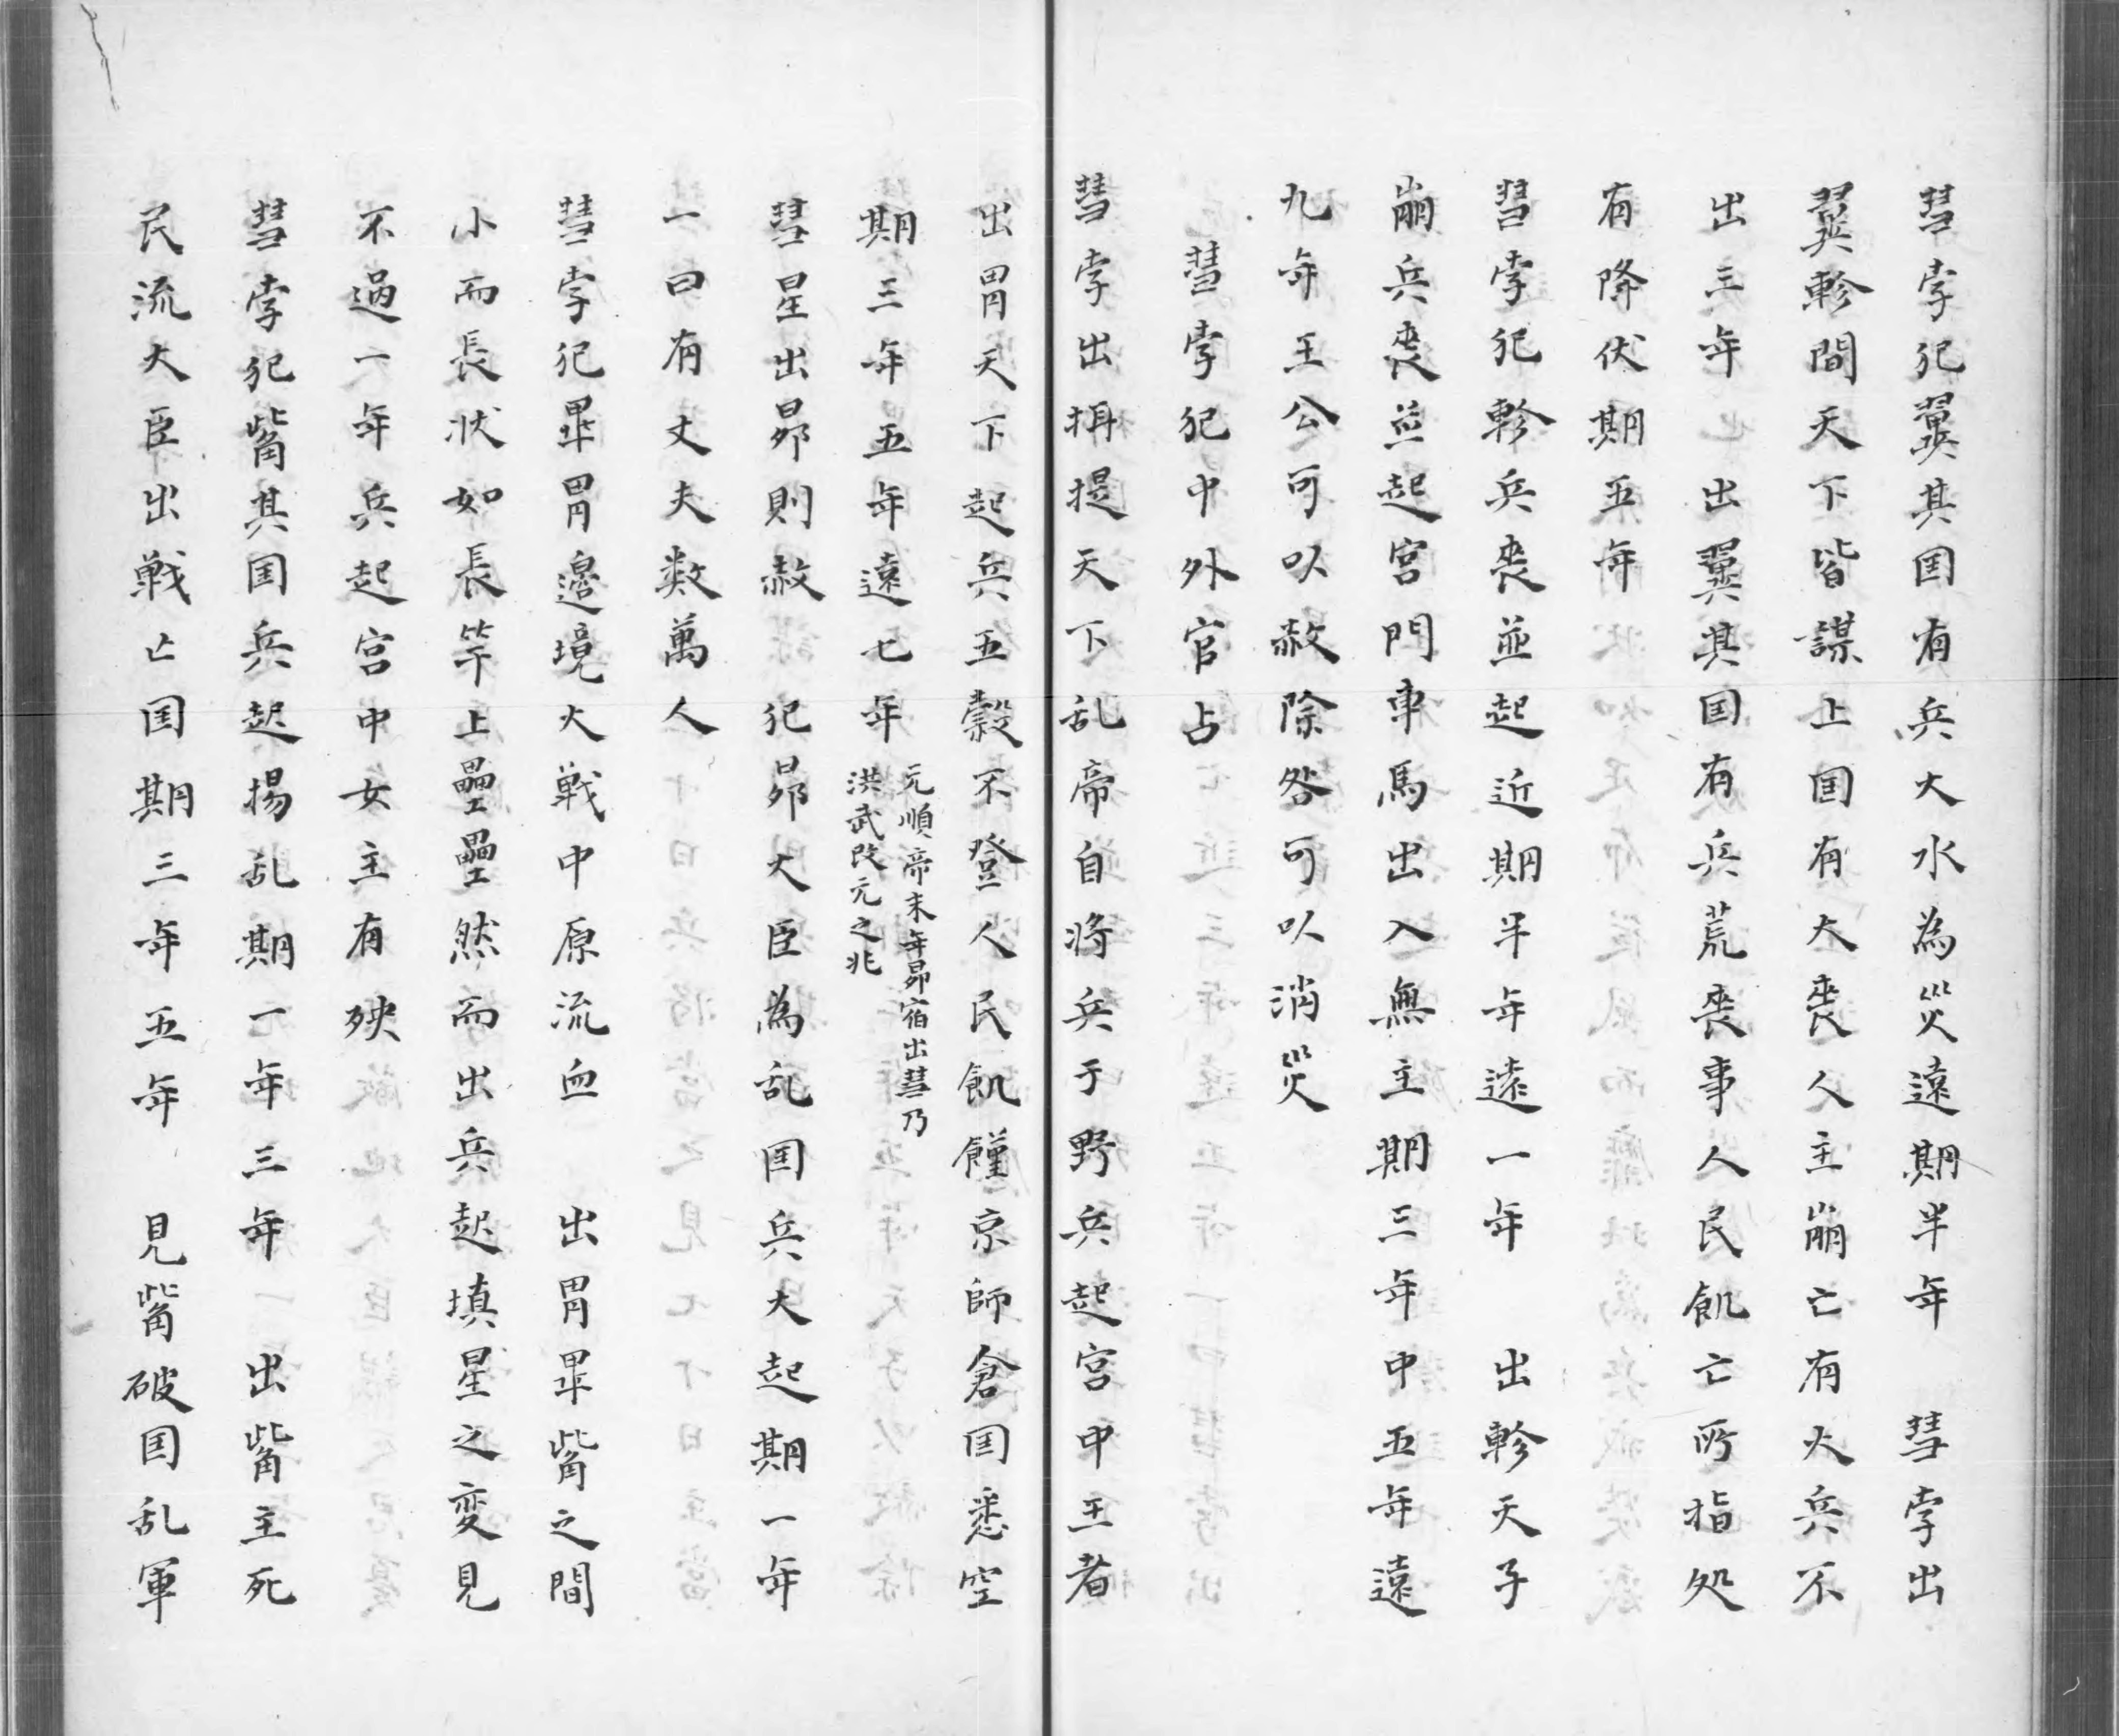 彗孛犯翼其国有兵大水為災遠期半年　彗孛出
翼軫間天下皆謀上国有大喪人主崩亡有大兵不
出三年　出翼其国有兵荒喪事人民飢亡所指処
有降伏期五年
彗孛犯軫兵喪並起近期半年遠一年　出軫天子
崩兵喪並起宮門車馬出入無主期三年中五年遠
九年王公可以赦除咎可以消災
彗孛犯中外官占
彗孛出摂提天下乱帝自将兵于野兵起宮中王者
出胃天下起兵五穀不登人民飢饉京師倉国悉空
期三年五年遠七年
元順帝末年昴宿出彗乃
洪武改元之兆
彗星出昴則赦　犯昴大臣為乱国兵大起期一年
一曰有丈夫数萬人
彗孛犯畢胃邉境大戦中原流血　出胃畢觜之間
小而長状如長竿上壘壘然而出兵起填星之変見
不過一年兵起宮中女主有殃
彗孛犯觜其国兵起揚乱期一年三年　出觜主死
民流大臣出戦亡国期三年五年　見觜破国乱軍